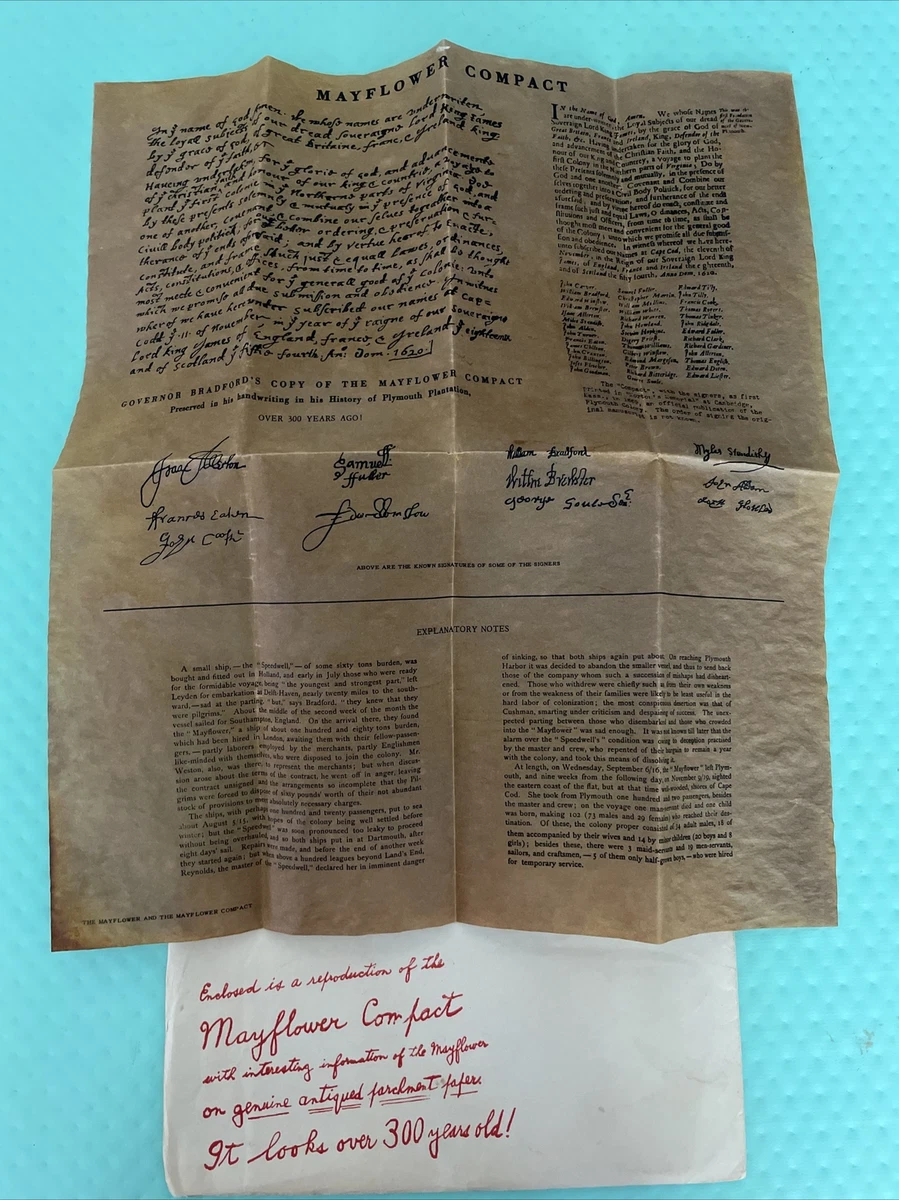 MAYFLOWER COMPACT
In ẏ name of god Amen. We whose names are underwriten,
the loyal subjects of our dread soveraigne Lord King James
by ẏ grace of god, of great Britaine, franc, & Ireland king,
defendor of ẏ faith, &c
Haveing undertaken, for ẏ glorie of god, and advancemente
of ẏ christian faith and honour of our king & countrie, a voyage to
plant ẏ first colonie in ẏ Northerne parts of virginia. Doe
by these presents solemnly & mutualy in ẏ presence of god and
one of another, covenant & combine our selves togeather into a
civill body politick; for our better ordering, & preservation & fur-
therance of ẏ ends aforesaid; and by vertue hearof to enacte,
constitute, and frame such just & equall lawes, ordinances,
Acts, constitutions, & offices, from time to time, as shall be thought
most meete & convenient for ẏ generall good of ẏ Colonie: unto
which we promise all due submission and obedience. In witnes
wherof we have hereunder subscribed our names at Cape
Codd ẏ .11. of November, in ẏ year of ẏ raigne of our soveraigne
Lord king James of England, france, & Ireland ẏ eighteenth
and of Scotland ẏ fiftie fourth. Ano: Dom. 1620.
GOVERNOR BRADFORD'S COPY OF THE MAYFLOWER COMPACT
Preserved in his handwriting in his History of Plymouth Plantation,
OVER 300 YEARS AGO!
IN the Name of God, Amen. We whose Names
are under-written, the Loyal Subjects of our dread
Sovereign Lord King James, by the grace of God of
Great Britain, France and Ireland, King, Defendor of the
Faith, &c. Having undertaken for the glory of God,
and advancement of the Christian Faith, and the Ho-
nour of our King and Countrey, a Voyage to plant the
first Colony in the Northern parts of Virginia; Do by
these Presents solemnly and mutually, in the presence of
God and one another, Covenant and Combine our
selves together into a Civil Body Politick, for our better
ordering and preservation, and furtherance of the ends
aforesaid; and by virtue hereof do enact, constitute and
frame such just and equal Laws, Ordinances, Acts, Con-
stitutions and Officers, from time to time, as shall be
thought most meet and convenient for the general good
of the Colony; unto which we promise all due submis-
sion and obedience. In witness whereof we have here-
unto subscribed our Names at Cape Cod, the eleventh of
November, in the Reign of our Sovereign Lord King
James, of England, France and Ireland the eighteenth,
and of Scotland the fifty fourth, Anno Dom. 1620.
John Carver, Samuel Fuller, Edward Tilly,
William Bradford, Christopher Martin, John Tilly,
Edward Winslow, William Mullins, Francis Cook,
William Brewster, William White, Thomas Rogers,
Isaac Allerton, Richard Warren, Thomas Tinker,
Miles Standish, John Howland, John Ridgdale,
John Alden, Steven Hopkins, Edward Fuller,
John Turner, Digery Priest, Richard Clark,
Francis Eaton, Thomas Williams, Richard Gardiner,
James Chilton, Gilbert Winslow, John Allerton,
John Craxton, Edmund Margeson, Thomas English,
John Billington, Peter Brown, Edward Doten,
Joses Fletcher, Richard Bitteridge, Edward Liester.
John Goodman, George Soule,
The "Compact", with the signers, as first
printed in "Morton's Memorial" at Cambridge,
Mass., in 1669, an official publication of the
Plymouth Colony. The order of signing the orig-
inal manuscript is not known.
Isaac Allerton
Samuell
Fuller
William Bradford
Myles Standish
Willm Brewster
Francis Eaton
Edw Winslow
George Soule
ABOVE ARE THE KNOWN SIGNATURES OF SOME OF THE SIGNERS
EXPLANATORY NOTES
A small ship,—the "Speedwell,"—of some sixty tons burden, was
bought and fitted out in Holland, and early in July those who were ready
for the formidable voyage, being "the youngest and strongest part," left
Leyden for embarkation at Delft-Haven, nearly twenty miles to the south-
ward,—sad at the parting, "but," says Bradford, "they knew that they
were pilgrims." About the middle of the second week of the month the
vessel sailed for Southampton, England. On the arrival there, they found
the "Mayflower," a ship of about one hundred and eighty tons burden,
which had been hired in London, awaiting them with their fellow-passen-
gers,—partly laborers employed by the merchants, partly Englishmen
like-minded with themselves, who were disposed to join the colony. Mr.
Weston, also, was there, to represent the merchants; but when discus-
sion arose about the terms of the contract, he went off in anger, leaving
the contract unsigned and the arrangements so incomplete that the Pil-
grims were forced to dispose of sixty pounds' worth of their not abundant
stock of provisions to meet absolutely necessary charges.
The ships, with perhaps one hundred and twenty passengers, put to sea
about August 5/15, with hopes of the colony being well settled before
winter; but the "Speedwell" was soon pronounced too leaky to proceed
without being overhauled, and so both ships put in at Dartmouth, after
eight days' sail. Repairs were made, and before the end of another week
they started again; but when above a hundred leagues beyond Land's End,
Reynolds, the master of the "Speedwell," declared her in imminent danger
of sinking, so that both ships again put about. On reaching Plymouth
Harbor it was decided to abandon the smaller vessel, and thus to send back
those of the company whom such a succession of mishaps had disheart-
ened. Those who withdrew were chiefly such as from their own weakness
or from the weakness of their families were likely to be least useful in the
hard labor of colonization; the most conspicuous desertion was that of
Cushman, smarting under criticism and despairing of success. The unex-
pected parting between those who disembarked and those who crowded
into the "Mayflower" was sad enough. It was not known till later that the
alarm over the "Speedwell's" condition was owing to deception practised
by the master and crew, who repented of their bargain to remain a year
with the colony, and took this means of dissolving it.
At length, on Wednesday, September 6/16, the "Mayflower" left Plym-
outh, and nine weeks from the following day, on November 9/19, sighted
the eastern coast of the flat, but at that time well-wooded, shores of Cape
Cod. She took from Plymouth one hundred and two passengers, besides
the master and crew; on the voyage one man-servant died and one child
was born, making 102 (73 males and 29 females) who reached their des-
tination. Of these, the colony proper consisted of 34 adult males, 18 of
them accompanied by their wives and 14 by minor children (20 boys and 8
girls); besides these, there were 3 maid-servants and 19 men-servants,
sailors, and craftsmen,—5 of them only half-grown boys,—who were hired
for temporary service.
THE MAYFLOWER AND THE MAYFLOWER COMPACT
Enclosed is a reproduction of the
Mayflower Compact
with interesting information of the Mayflower
on genuine antiqued parchment paper.
It looks over 300 years old!